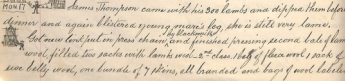 MONEY
James Thompson came with his 300 lambs and dipped them before
dinner and again blistered young mare's leg she is still very lame.
by Blacksmith
Got new bolt put in press and finished pressing second bale of lambs
wool, filled two sacks with lambs wool 2nd class 1 bag of fleece wool 1 sack of
ewe belly wool, one bundle of 7 skins, all branded and bags of wool labels